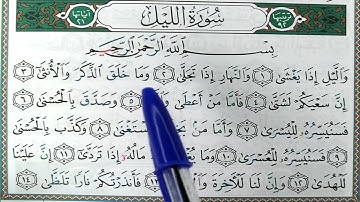 ترتيبها ٩٢ سُورَةُ اللَّيْلِ آياتها ٢١
بِسْمِ اللَّهِ الرَّحْمَٰنِ الرَّحِيمِ
وَاللَّيْلِ إِذَا يَغْشَىٰ ١ وَالنَّهَارِ إِذَا تَجَلَّىٰ ٢ وَمَا خَلَقَ الذَّكَرَ وَالْأُنْثَىٰ ٣
إِنَّ سَعْيَكُمْ لَشَتَّىٰ ٤ فَأَمَّا مَنْ أَعْطَىٰ ٥ وَصَدَّقَ بِالْحُسْنَىٰ ٦
فَسَنُيَسِّرُهُ لِلْيُسْرَىٰ ٧ وَأَمَّا مَنْ ٨ وَكَذَّبَ بِالْحُسْنَىٰ ٩
فَسَنُيَسِّرُهُ لِلْعُسْرَىٰ ١٠ وَمَا مَالُهُ إِذَا تَرَدَّىٰ ١١ إِنَّ عَلَيْنَا
لَلْهُدَىٰ ١٢ وَإِنَّ لَنَا لَلْآخِرَةَ ١٣ فَأَنْذَرْتُكُمْ نَارًا تَلَظَّىٰ ١٤